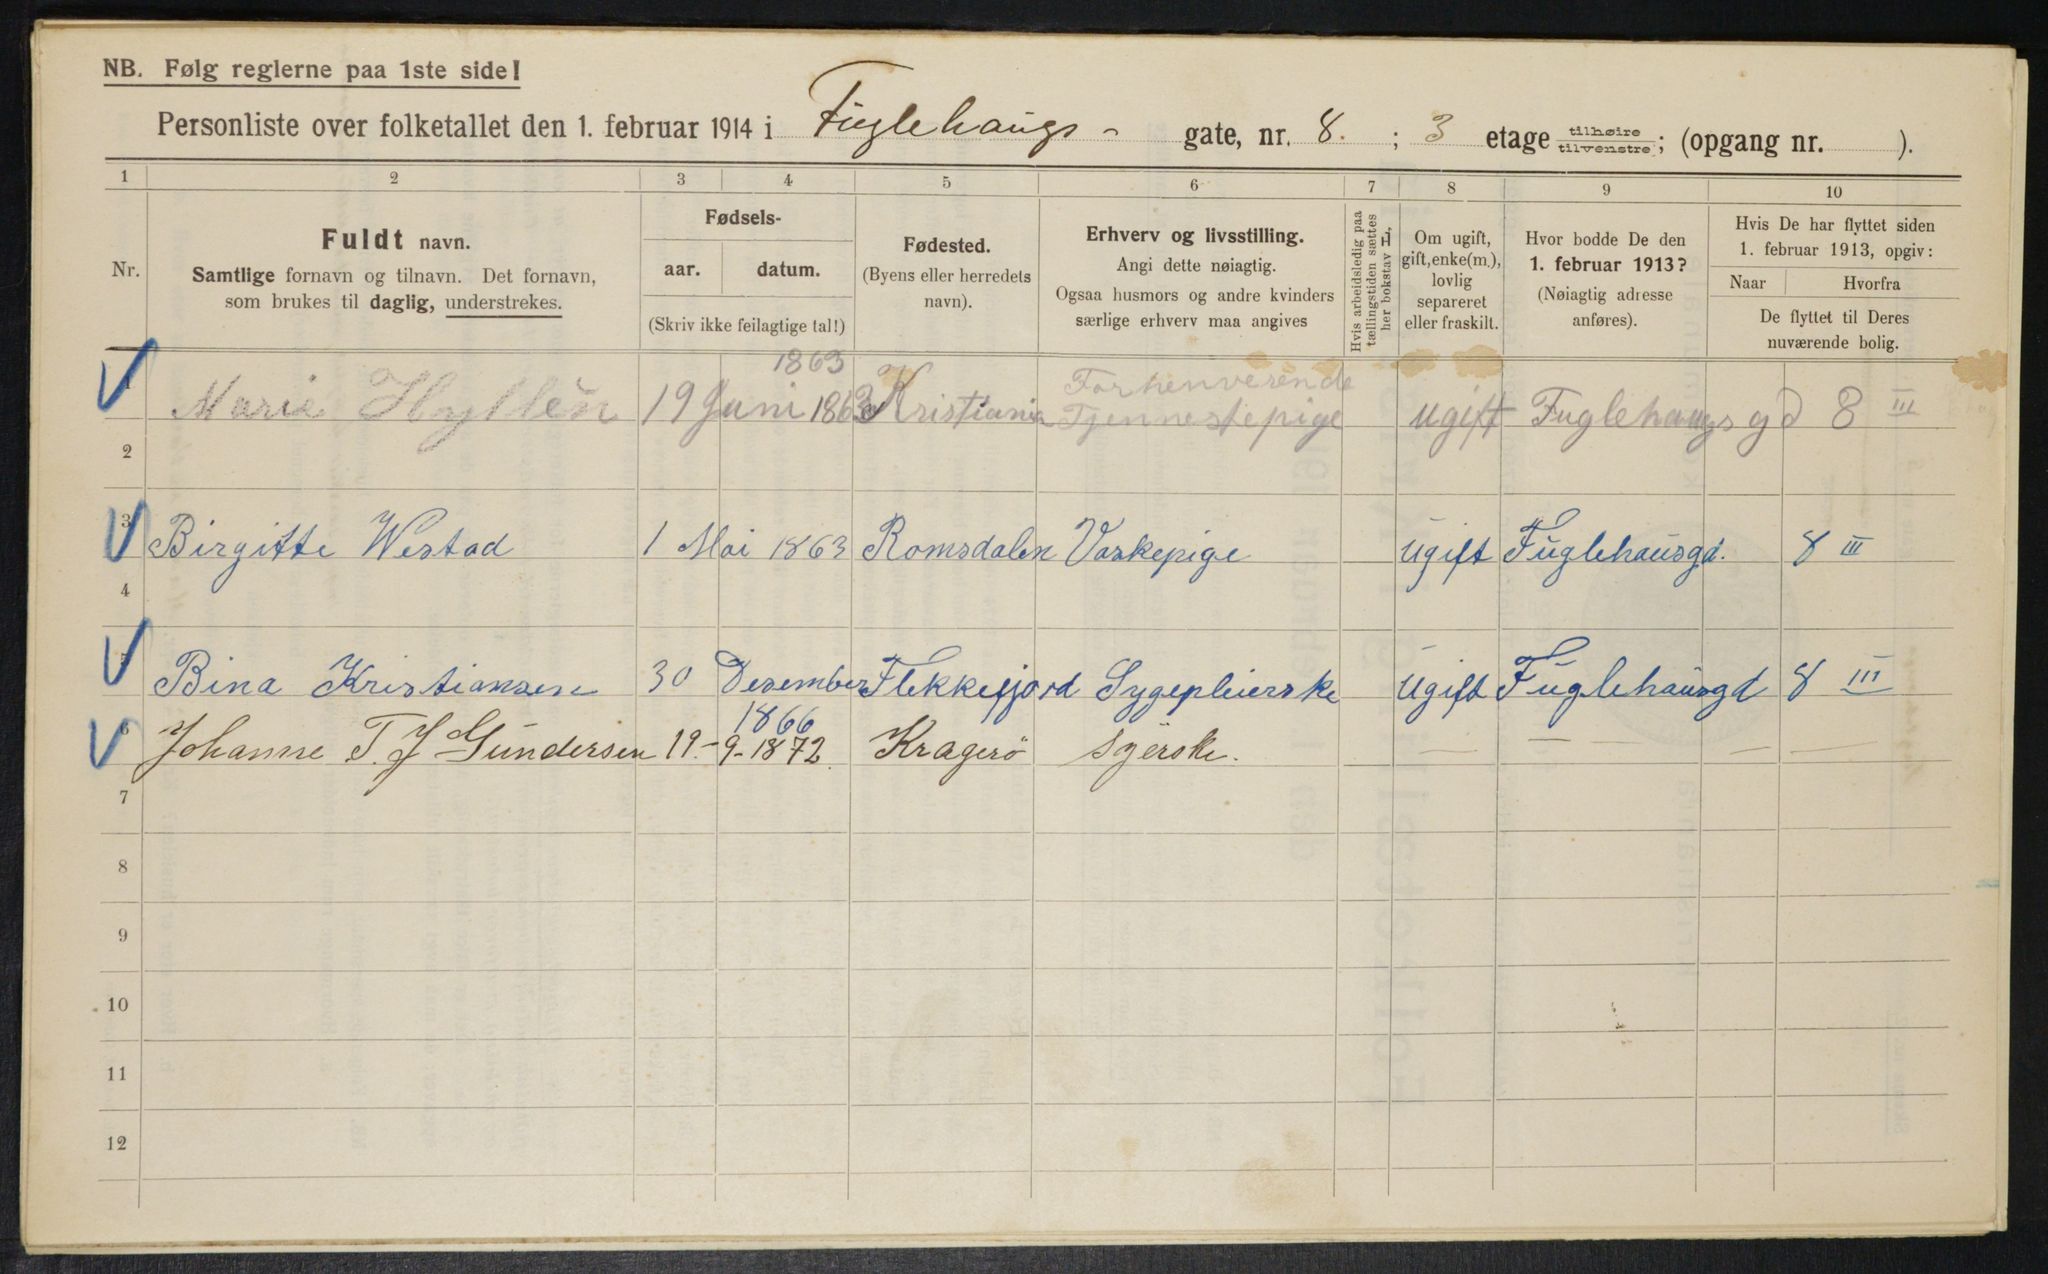 NB. Følg reglerne paa 1ste side!
Personliste over folketallet den 1. februar 1914 i Fuglehaugs- gate, nr. 8. ; 3 etage tilhøire tilvenstre; (opgang nr. ).
1 2 3 4 5 6 7 8 9 10
Nr.
Fuldt navn.
Samtlige fornavn og tilnavn. Det fornavn,
som brukes til daglig, understrekes.
Fødsels-
aar. datum.
(Skriv ikke feilagtige tal!)
Fødested.
(Byens eller herredets
navn).
Erhverv og livsstilling.
Angi dette nøiagtig.
Ogsaa husmors og andre kvinders
særlige erhverv maa angives
Hvis arbeidsledig paa
tællingstiden sættes
her bokstav L,
Om ugift,
gift, enke(m.),
lovlig
separeret
eller fraskilt.
Hvor bodde De den
1. februar 1913?
(Nøiagtig adresse
anføres).
Hvis De har flyttet siden
1. februar 1913, opgiv:
Naar Hvorfra
De flyttet til Deres
nuværende bolig.
1863 Forhenverende
1 Marie Hyllèn 19 Juni 1863 Kristiania Tjennestepige ugift Fuglehaugs gd 8 III
2
3 Birgitte Westad 1 Mai 1863 Romsdalen Vaskepige ugift Fuglehausgd. 8 III
4
5 Bina Kristiansen 30 Desember Flekkefjord Sygepleierske ugift Fuglehausgd 8 III
1866
6 Johanne T. J Gundersen 19.- 9-1872. Kragerö syerske. — — — —
7
8
9
10
11
12